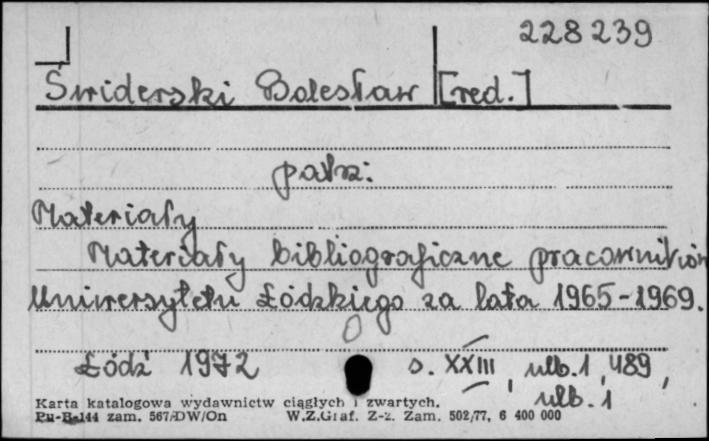 228239
Świderski Bolesław [red.]
patrz:
Materiały
Materiały bibliograficzne pracowników
Uniwersytetu Łódzkiego za lata 1965-1969.
Łódź 1972 s. XXIII, nlb. 1, 489,
nlb. 1
Karta katalogowa wydawnictw ciągłych i zwartych.
Pu-B-144 zam. 567/DW/On W.Z.Graf. Z-z. Zam. 502/77, 6 400 000